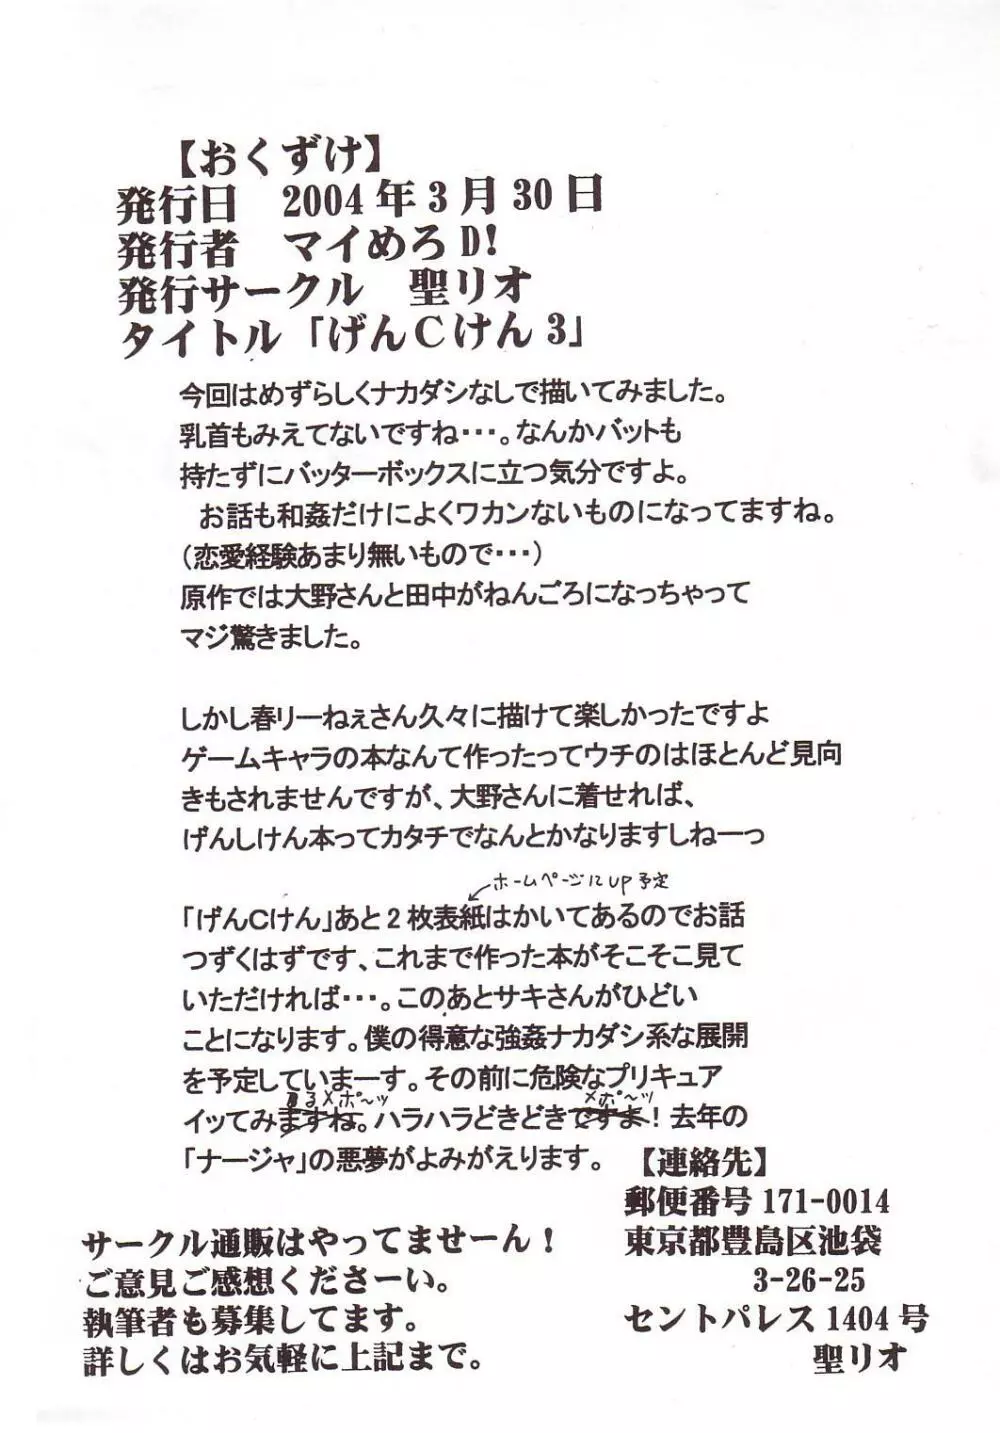 【おくずけ】
発行日　2004年3月30日
発行者　マイめろD!
発行サークル　聖リオ
タイトル「げんCけん3」
今回はめずらしくナカダシなしで描いてみました。
乳首もみえてないですね・・・。なんかバットも
持たずにバッターボックスに立つ気分ですよ。
お話も和姦だけによくワカンないものになってますね。
（恋愛経験あまり無いもので・・・）
原作では大野さんと田中がねんごろになっちゃって
マジ驚きました。
しかし春リーねぇさん久々に描けて楽しかったですよ
ゲームキャラの本なんて作ったってウチのはほとんど見向
きもされませんですが、大野さんに着せれば、
げんしけん本ってカタチでなんとかなりますしねーっ
ホームページにUP予定
「げんCけん」あと2枚表紙はかいてあるのでお話
つずくはずです、これまで作った本がそこそこ見て
いただければ・・・。このあとサキさんがひどい
ことになります。僕の得意な強姦ナカダシ系な展開
を予定していまーす。その前に危険なプリキュア
るメポ〜ッ　メポ〜ッ
イッてみますね。ハラハラどきどきですよ！去年の
「ナージャ」の悪夢がよみがえります。
【連絡先】
郵便番号171-0014
東京都豊島区池袋
3-26-25
セントパレス1404号
聖リオ
サークル通販はやってませーん！
ご意見ご感想くださーい。
執筆者も募集してます。
詳しくはお気軽に上記まで。